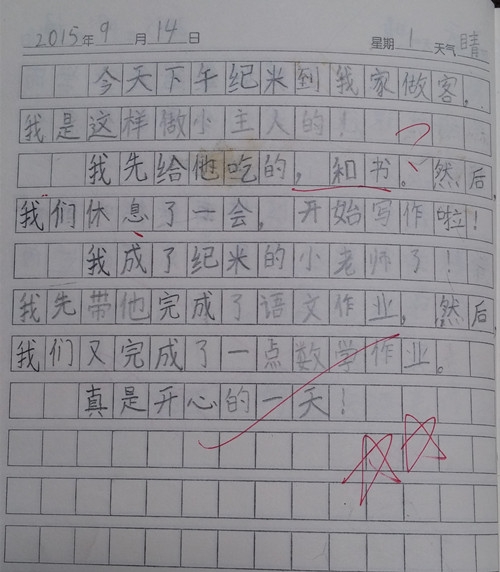 2015年9月14日 星期1 天气晴
今天下午纪米到我家做客。
我是这样做小主人的！
我先给他吃的，和书。然后，
我们休息了一会，开始写作啦！
我成了纪米的小老师了！
我先带他完成了语文作业，然后，
我们又完成了一点数学作业。
真是开心的一天！